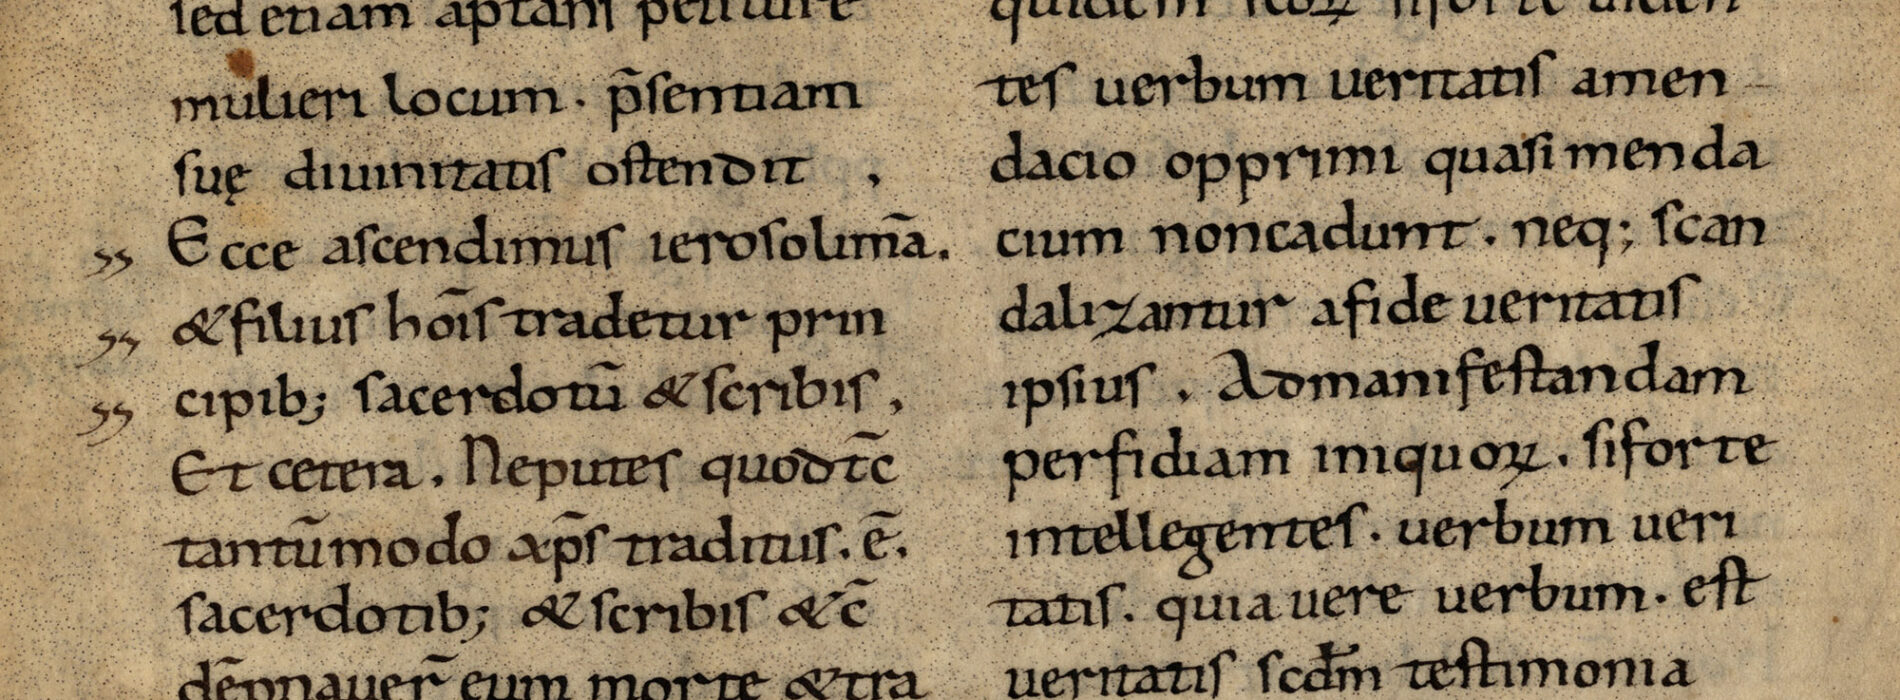 sed etiam aptam petiture
mulieri locum . p̄sentiam
suę diuinitatis ostendit ,
Ecce ascendimus ierosolimā .
& filius hōis tradetur prin
cipib; sacerdotū & scribis ,
Et cetera . Neputes quod tc̄
tantūmodo xp̄s traditus . ē .
sacerdotib; & scribis &c̄
dēpnauer̄ eum morte & tra
quidem
tes uerbum ueritatis amen
dacio opprimi quasi menda
cium non cadunt . neq; scan
dalizantur a fide ueritatis
ipsius . Ad manifestandam
perfidiam iniquoꝝ . si forte
intellegentes . uerbum ueri
tatis . quia uere uerbum . est
ueritatis scdm̄ testimonia